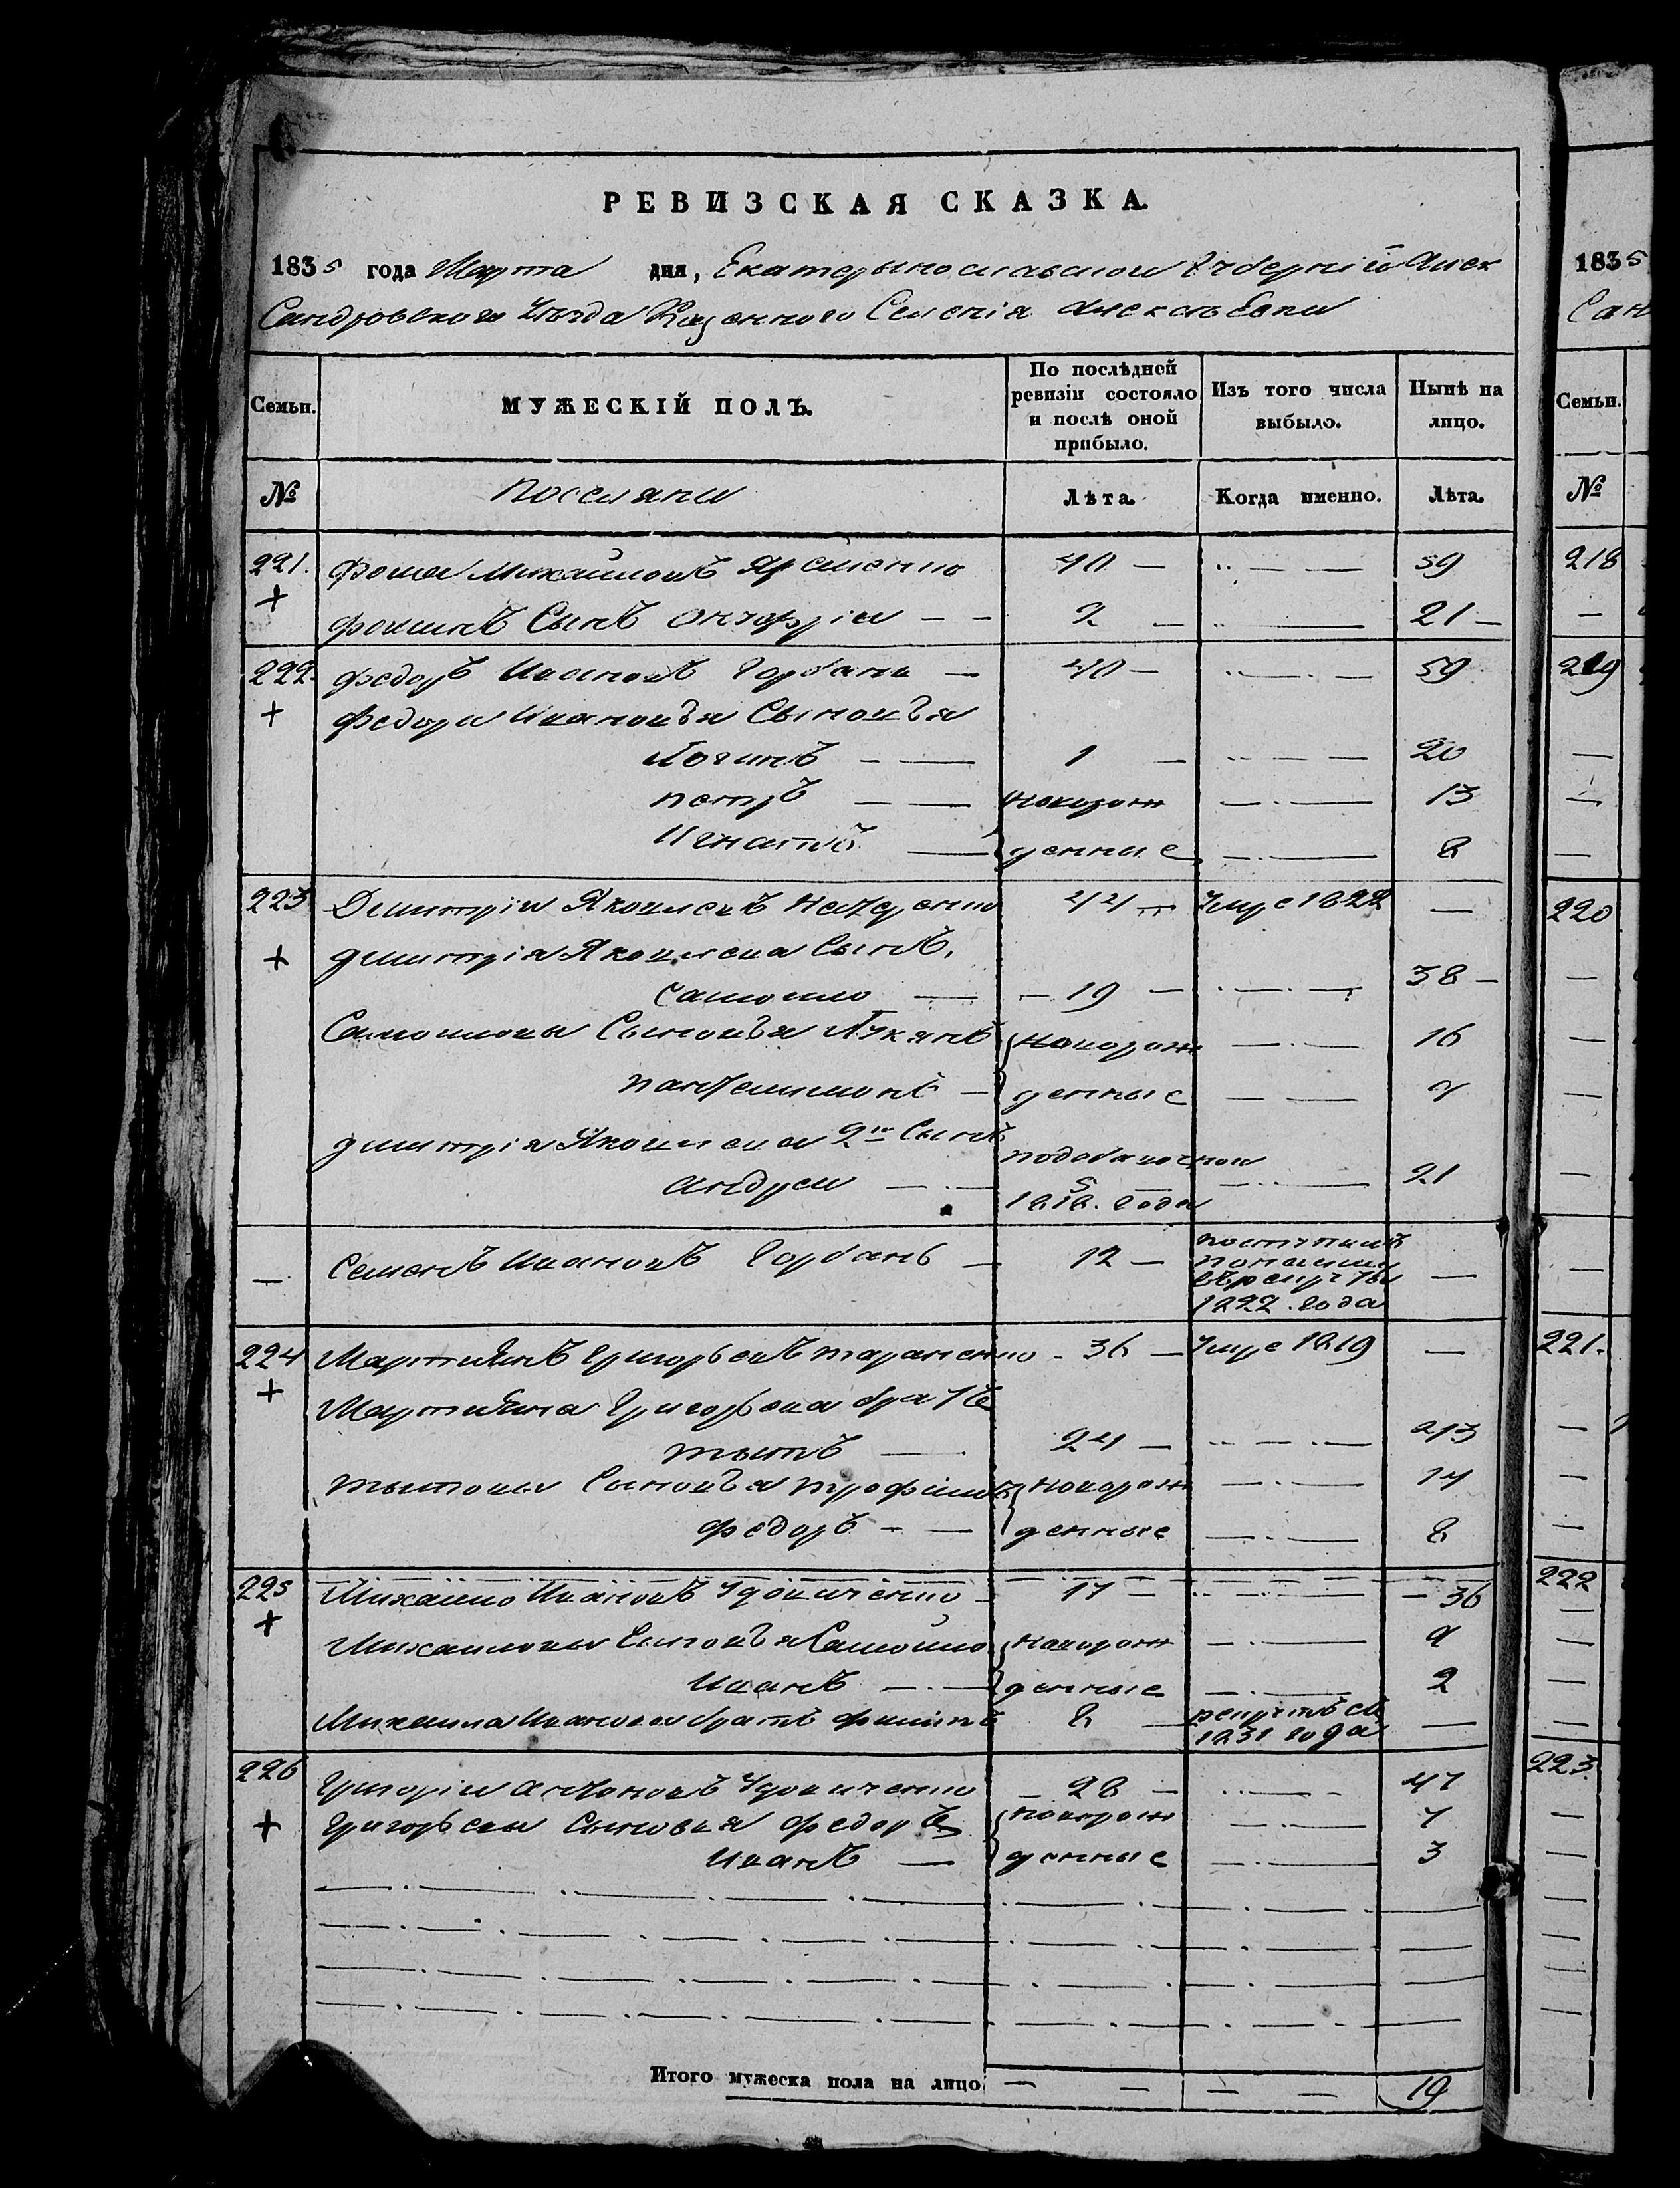 РЕВИЗСКАЯ СКАЗКА.
1835 года Марта дня, Екатерынославской Губерніи Алек
Сандровского Уѣзда Казенного Селенія Алексѣевки
Семьи. МУЖЕСКІЙ ПОЛЪ. По послѣдней ревизіи состояло и послѣ оной прибыло. Изъ того числа выбыло. Нынѣ на лицо.
№ Поселяни Лѣта. Когда именно. Лѣта.
221. Фома Михайловъ Яременко 40 — 59
+ Фоминъ Сынъ Онуфрій 2 — 21
222. Федоръ Ивановъ Горбань 40 — 59
+ Федора Иванова Сыновья
Логинъ 1 — 20
Петръ новорож 13
Игнатъ денные 8
223 Дмитрій Яковлевъ Назаренко 44 Умре 1822 —
+ Дмитрія Яковлева Сынъ
Самойло 19 — 38
Самойловы Сыновья Лукянъ новорож 16
Пантелимонъ денные 7
Дмитрія Яковлева 2й Сынъ
Андрей 1818. года 21
— Семенъ Ивановъ Горбань 12 — поступилъ
в рекруты —
1822. года
224 Мартинъ Григорьевъ Тараненко 36 — Умре 1819 —
+ Мартина Григорьева братъ
Тытъ 24 — 43
Тытовы Сыновья Трофимъ новорож 14
Федоръ денные 8
225 Михайло Ивановъ Удовиченко 17 — 36
+ Михайловы Сыновья Самойло новорож 9
Иванъ денные 2
Михайла Иванова братъ Филипъ 8
1831 года —
226 Григорій Антоновъ Удовиченко 28 — 47
+ Григорьевы Сыновья Федоръ новорож 7
Иванъ денные 3
Итого мужеска пола на лицо 19
1835
Сан
Семьи.
№
218
219
220
221.
222
223